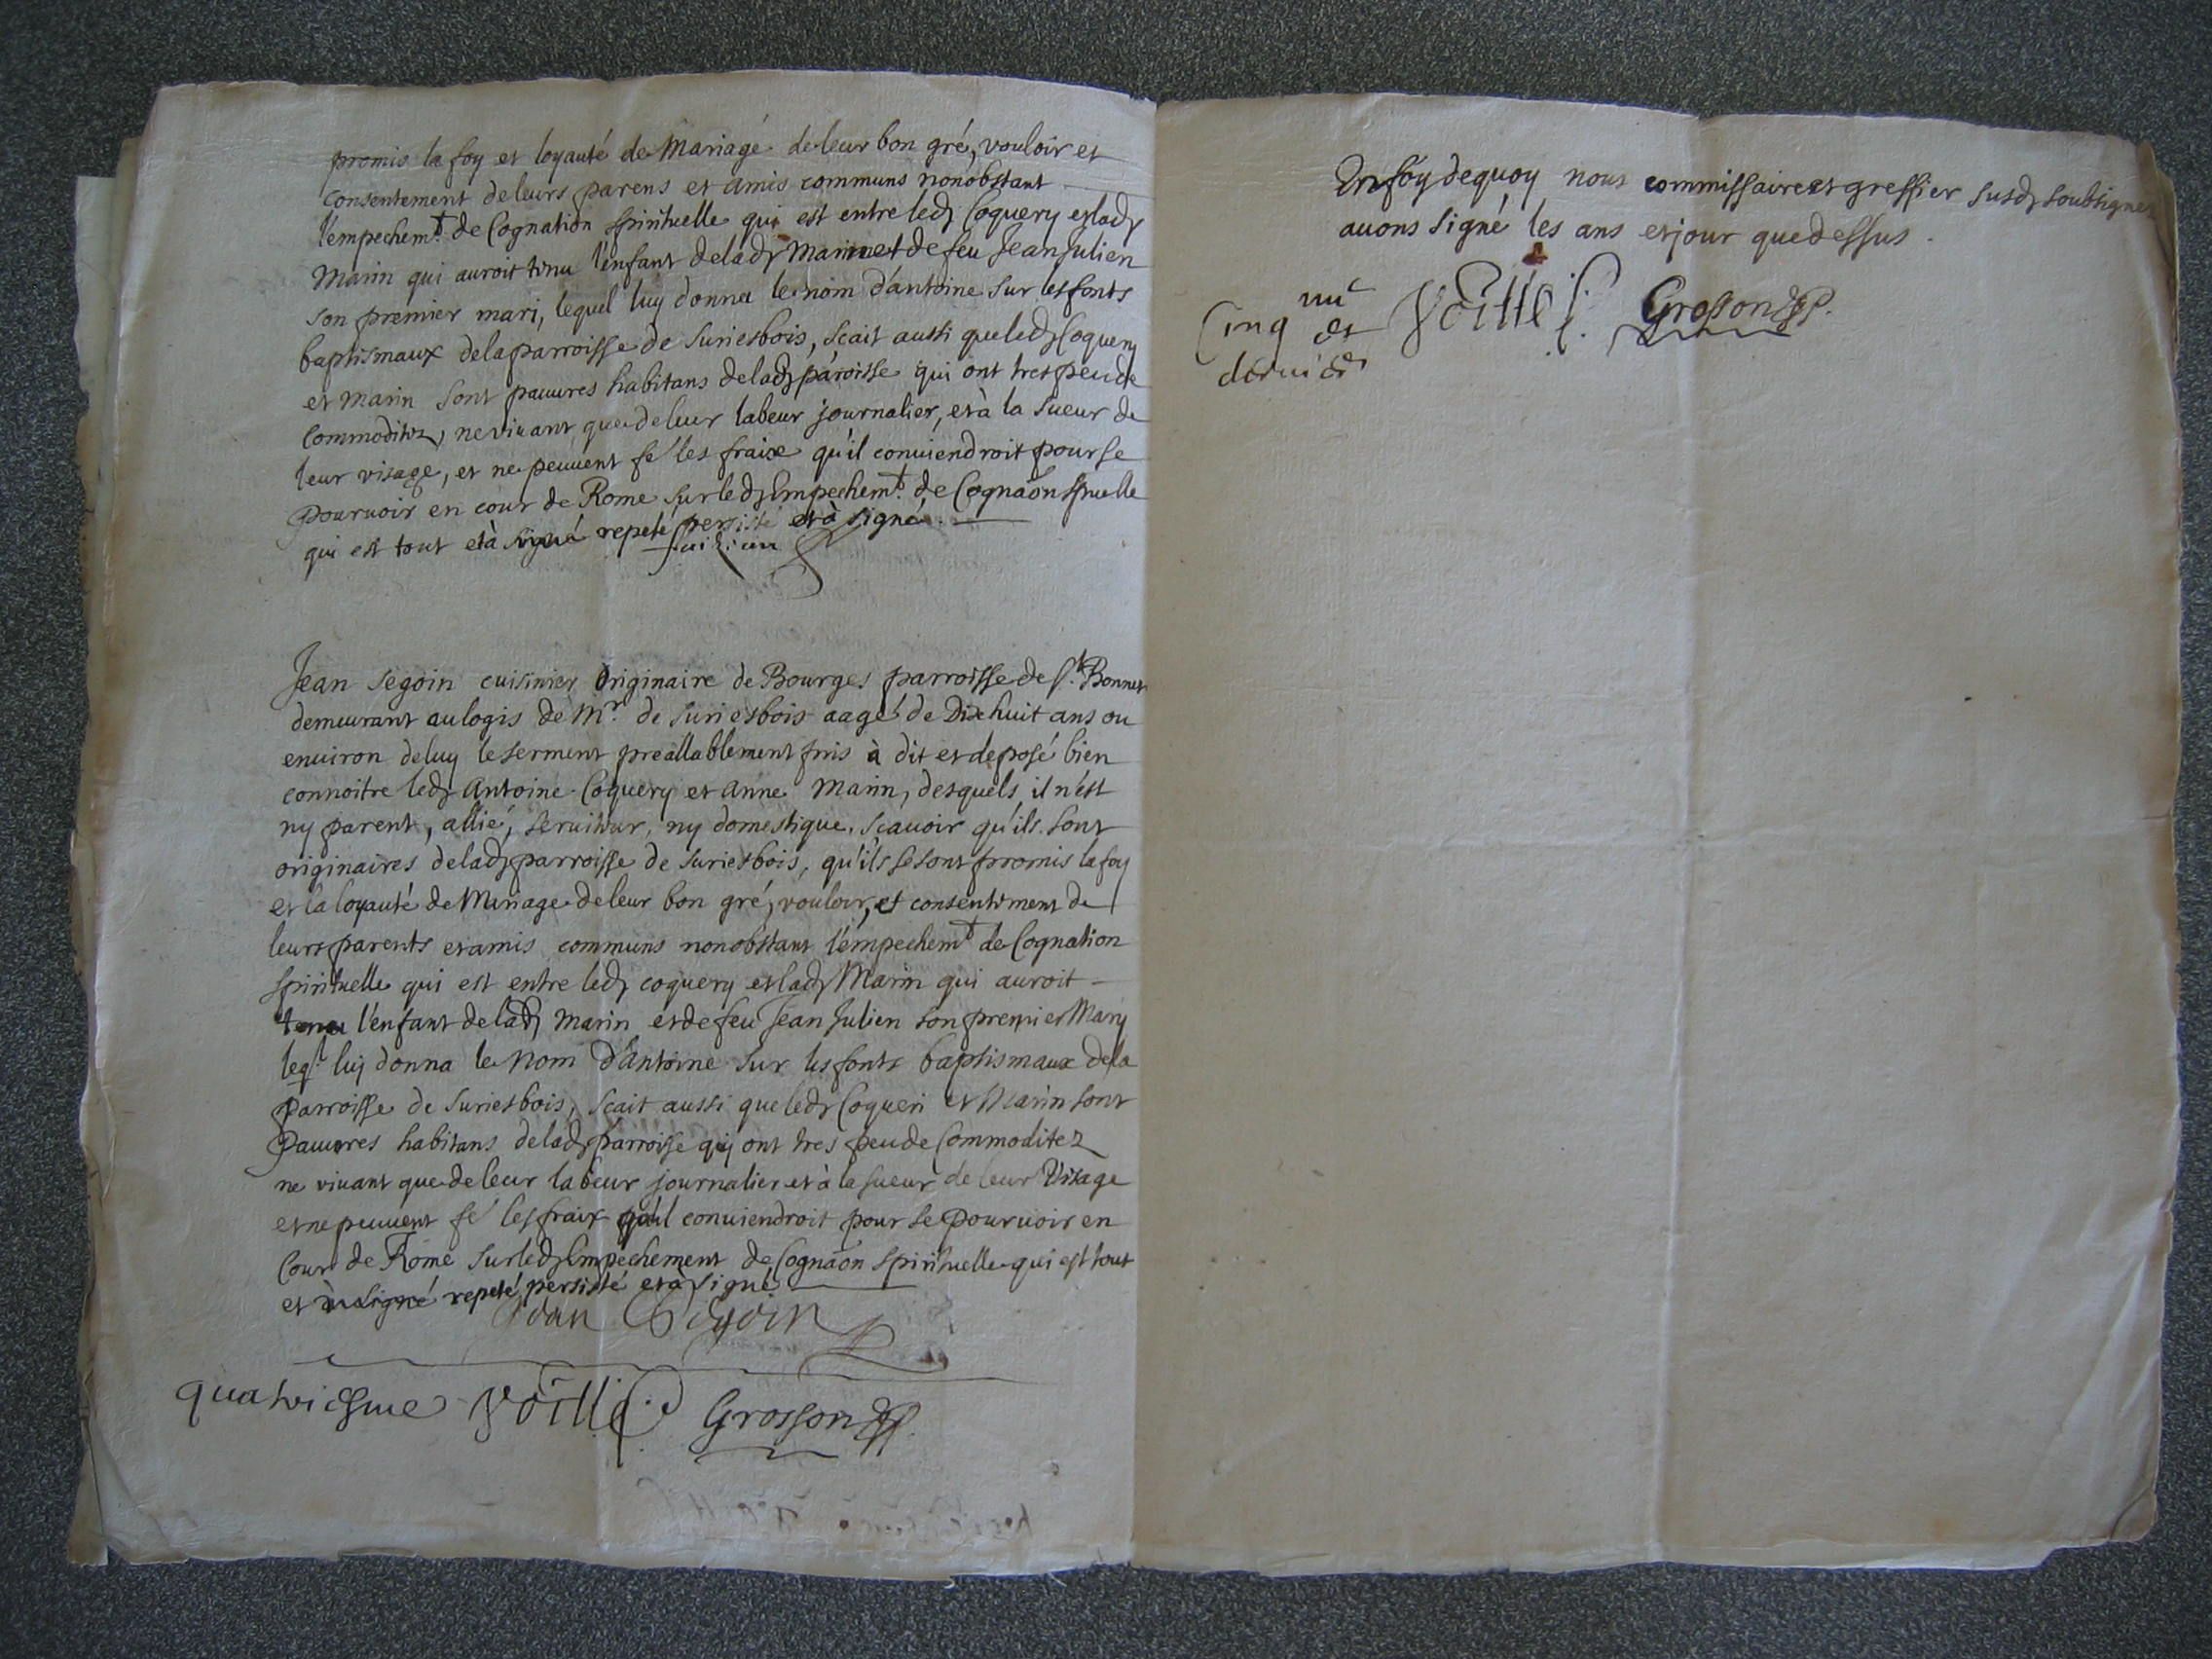 promis la foy et loyauté de Mariage de leur bon gré, vouloir et
consentement de leurs parens et amis communs nonobstant
l'empechemt. de Cognation spirituelle qui est entre led. Coquery et lad.
Marin qui auroit tenu l'enfant de lad. Marin et de feu Jean Julien
son premier mari, lequel luy donna le nom d'antoine sur les fonts
baptismaux de la parroisse de Suriesbois, scait aussi que led. Coquery
et Marin sont pauures habitans de lad. paroisse qui ont tres peu de
Commoditez, ne viuant que de leur labeur journalier, et à la sueur de
leur visage, et ne peuuent fe les fraix qu'il conuiendroit pour se
pouruoir en cour de Rome sur led. Empechemt. de Cognaõn spuelle
qui est tout et à signé repeté persisté et à signé.
Jean Segoin cuisinier Originaire de Bourges parroisse de St. Bonnet
demeurant au logis de Mr. de Suriesbois aagé de Dix huit ans ou
enuiron de luy le serment preallablement pris à dit et deposé bien
connoitre led. Antoine Coquery et Anne Marin, desquels il n'est
ny parent, allié, seruiteur, ny domestique, scauoir qu'ils sont
originaires de lad. parroisse de Suriesbois, qu'ils se sont promis la foy
et la loyauté de Mariage de leur bon gré, vouloir, et consentement de
leurs parents et amis communs nonobstant l'empechemt de Cognation
spirituelle qui est entre led. coquery et lad. Marin qui auroit
tenu l'enfant de lad. Marin et de feu Jean Julien son premier Mary
leql. luy donna le Nom d'Antoine sur les fonts baptismaux de la
parroisse de Suriesbois, scait aussi que led. Coqueri et Marin sont
Pauures habitans de lad. parroisse qij ont tres peu de Commoditez
ne viuant que de leur labeur journalier et à la sueur de leur Visage
et ne peuuent fe les fraix qu'il conuiendroit pour se pouruoir en
Cour de Rome sur led. Empechement de Cognaõn spirituelle qui est tout
et à signé repeté persisté et à signé
Jean Segoin
quatriesme Voille Grosson
En foy de quoy nous commissaire et greffier susd. soubsignez
auons signé les ans et jour que dessus.
Cinq me et Voille Grosson
dernier